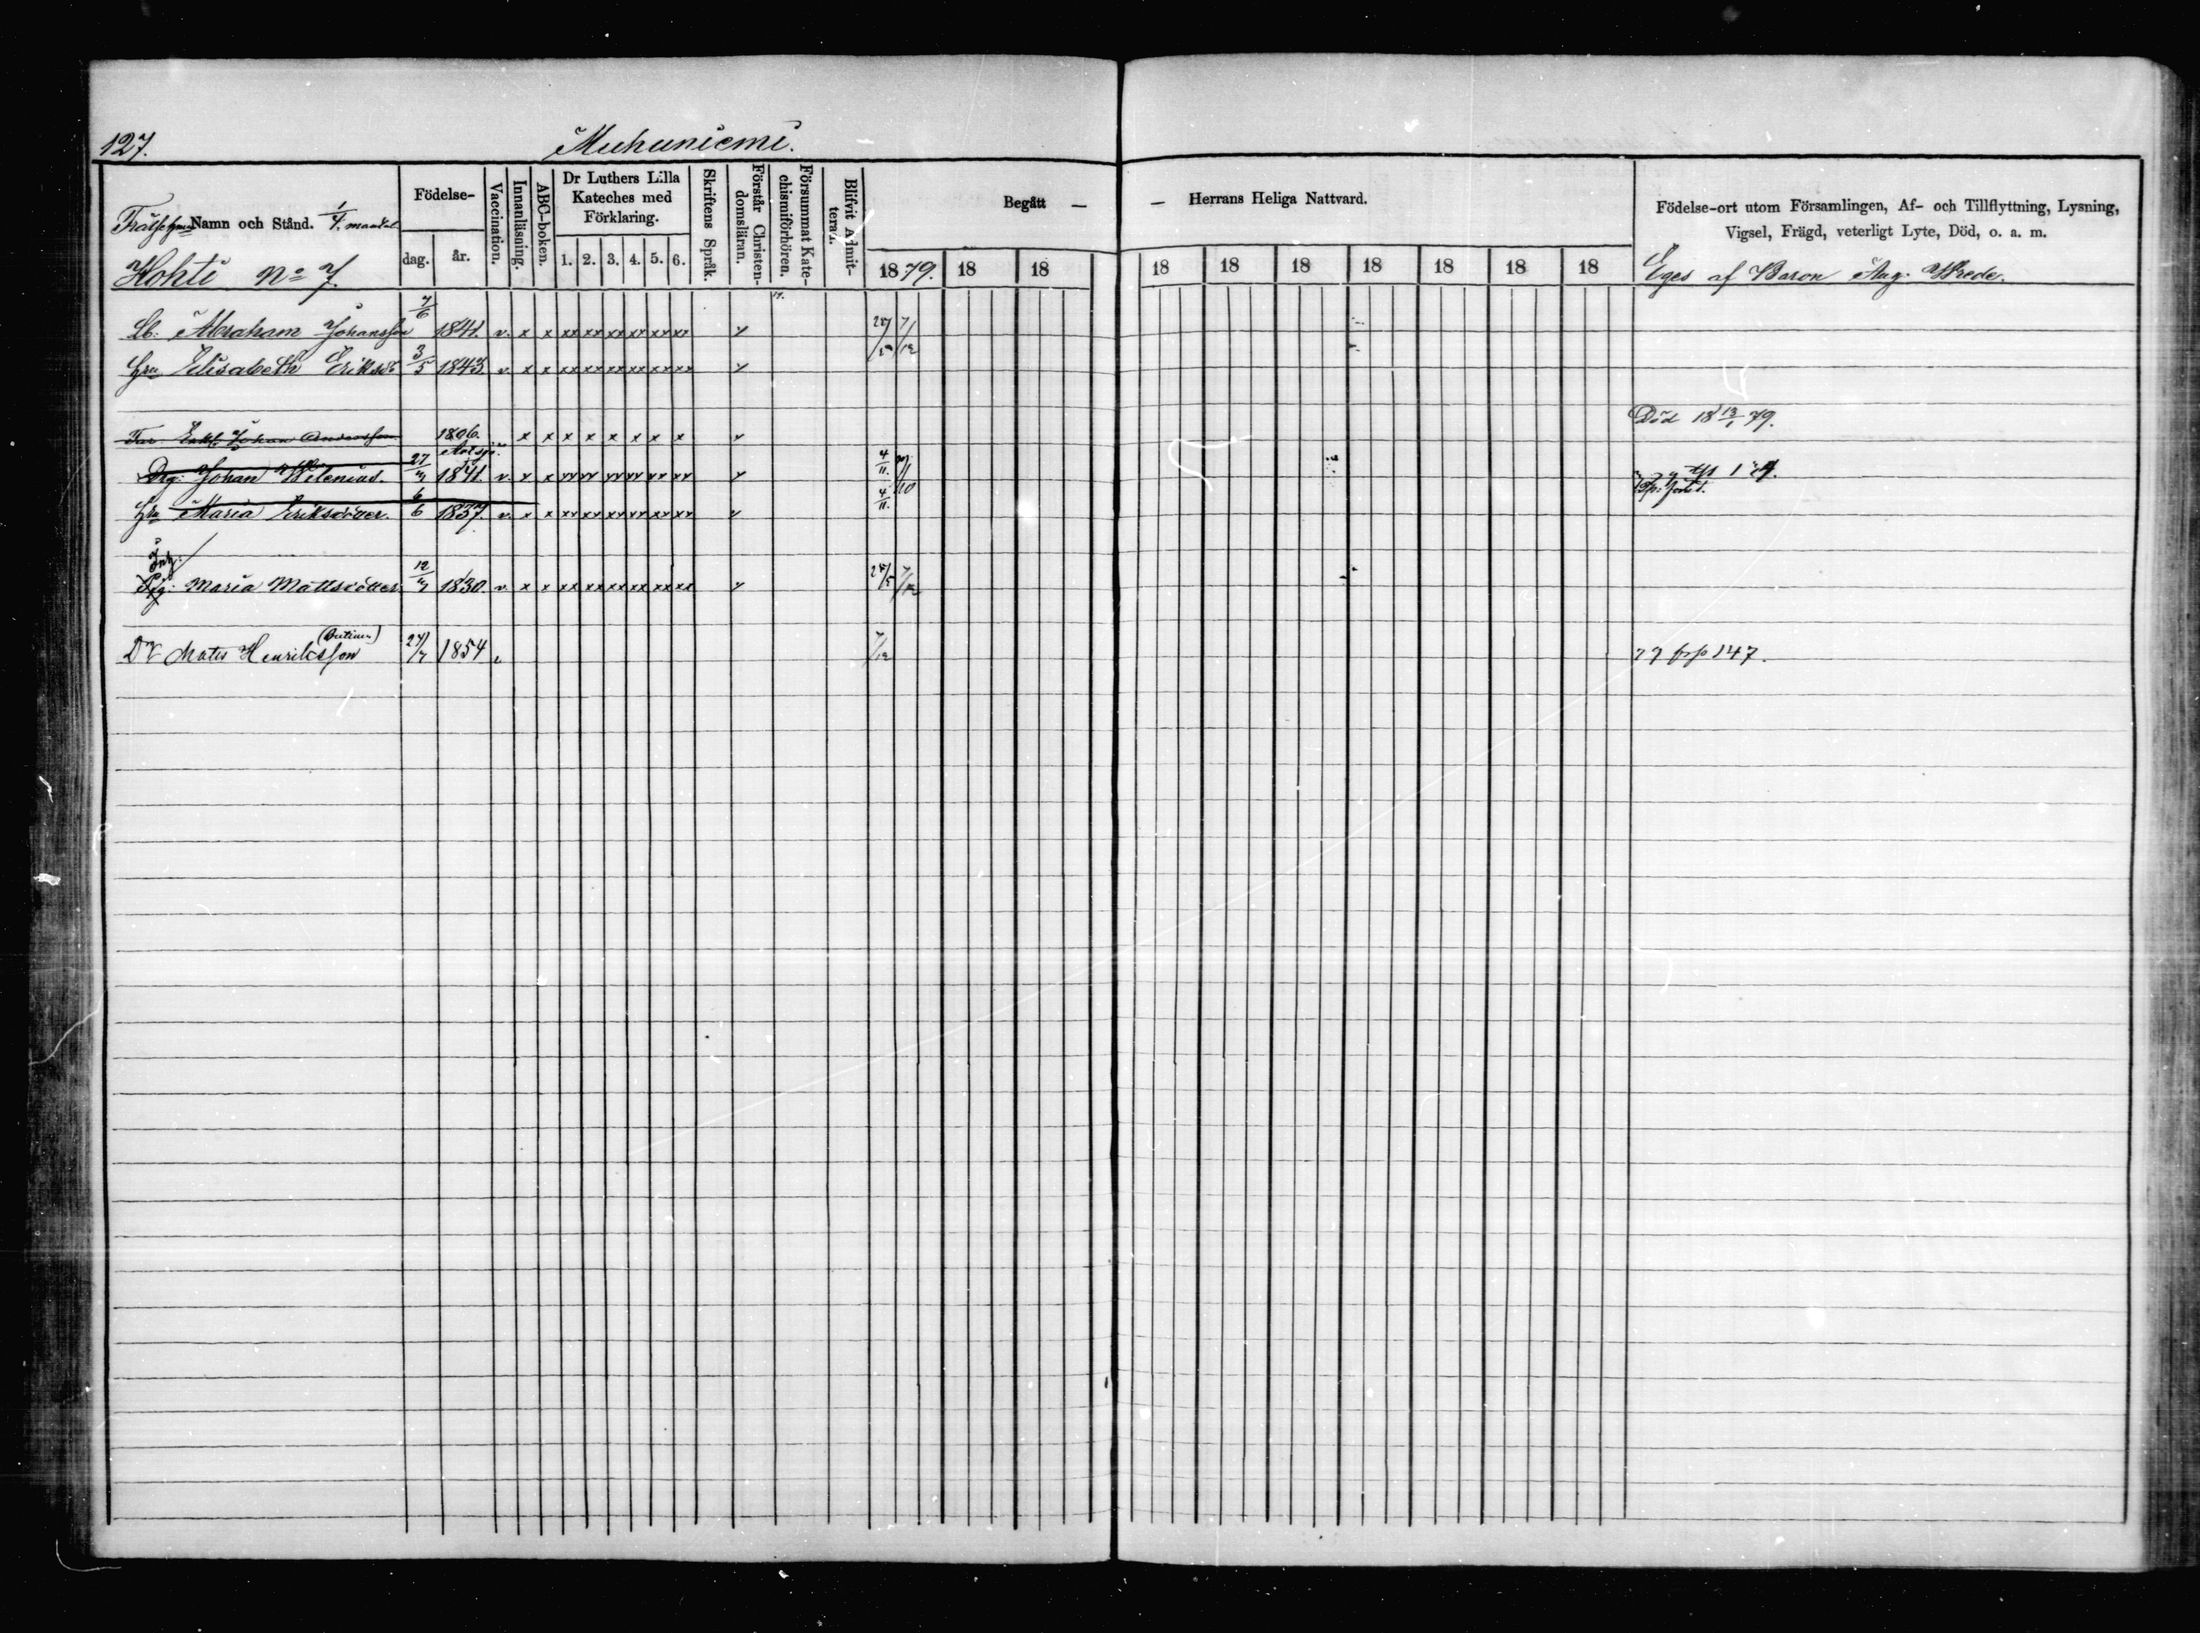 127.
Muhuniemi.
Namn och Stånd. 1/4 mantal
Födelse-
dag. år.
Vaccination.
Innanläsning.
ABC-boken.
Dr Luthers Lilla Kateches med Förklaring.
1. 2. 3. 4. 5. 6.
Skriftens Språk.
Förstår Christendomsläran.
Försummat Katechismiförhören.
Blifvit Admitterad.
Begått —
— Herrans Heliga Nattvard.
1879. 18 18
18 18 18 18 18 18 18
Födelse-ort utom Församlingen, Af- och Tillflyttning, Lysning,
Vigsel, Frägd, veterligt Lyte, Död, o. a. m.
Kohti No 7.
Eges af Baron Aug. Wrede.
Lb: Abraham Johansson 7/6 1841. v. x x xx xx xx xx xx xx
Hru Elisabeth Eriksd 3/5 1843 v. x x xx xx xx xx xx xx
Johan Andersson 1806. x x x x x x x x Död 18 13/1 79.
Drg: Johan 27/ 1841. v. x x 4/11
Hru Maria Eriksdotter. 6/6 1837. v. x x xx xx xx xx xx xx 4/11
Inh:
Maria Mattsdotter 12/ 1830. v x x xx xx xx xx xx xx 7/12
Dr Mats Henriksson 27/7 1854 7/12 147.